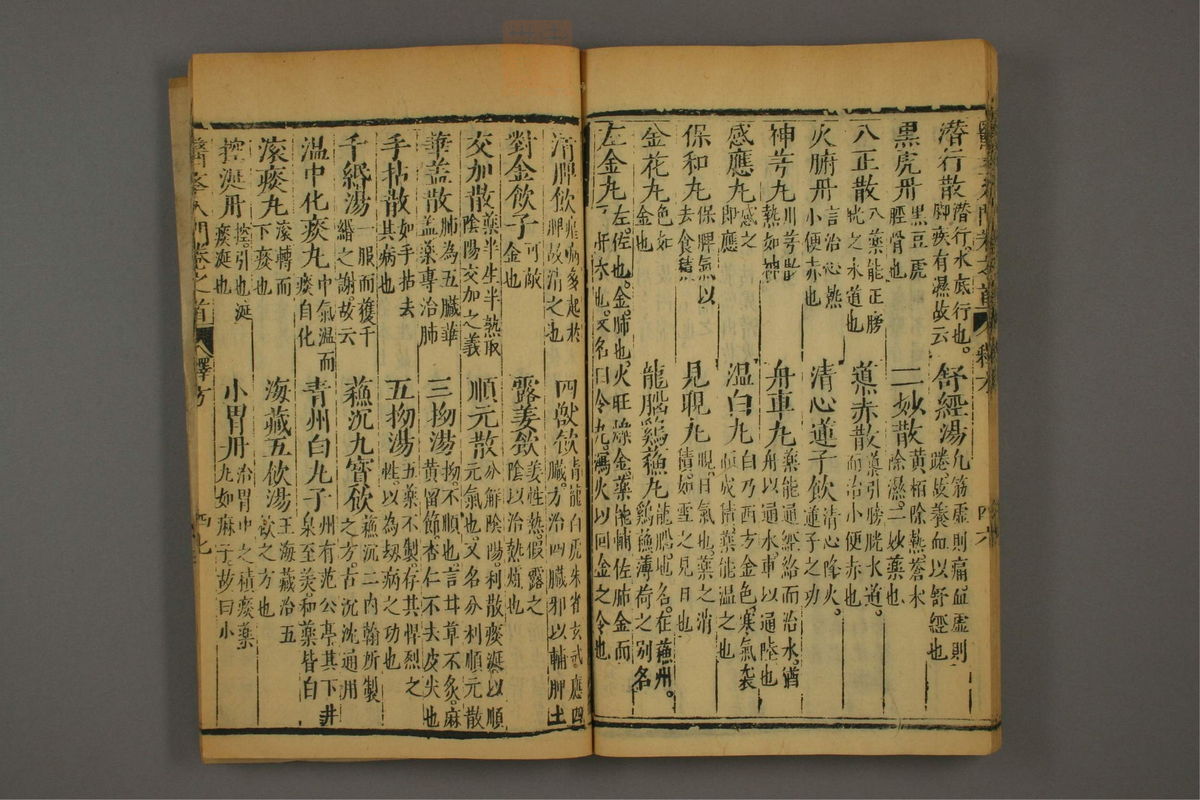 潛行散 潛行水底行也。脚疾有濕故云 舒經湯 凡筋虛則痛血虛則踡。故養血以舒經也
黑虎丹 黑豆虎脛骨也 二妙散 黃栢除熱蒼朮除濕。二妙藥也
八正散 八藥能正膀胱之水道也 導赤散 藥引膀胱水道。而治小便赤也
火腑丹 言治心熱小便赤也 清心蓮子飲 清心降火。蓮子之功
神芎丸 川芎散熱如神 舟車丸 藥能通經絡而治水。猶舟以通水。車以通陸也
感應丸 感之即應 溫白丸 白乃西方金色。寒氣襲而成積藥能溫之也
保和丸 保脾氣以去食積 見晛丸 晛。日氣也。藥之消積。如雪之見日也
金花丸 色如金也 龍腦鷄蘓丸 龍腦地名。在蘓州。鷄蘓薄荷之別名
左金丸 左。佐也。金。肺也。火旺爍金。藥能輔佐肺金而肝木也。又名曰令丸。瀉火以囘金之令也
消脾飲 瘧病多起於脾故清之也 四獸飲 青龍白虎朱雀玄武應四臟。方治四臟邪以輔脾土
對金飲子 可敵金也 露姜飲 姜性熱。假露之陰以治熱瘧也
交加散 藥半生半熟取陰陽交加之義 順元散 分解陰陽。利散痰涎。以順元氣也。又名分利順元散
華盖散 肺為五臟華盖藥專治肺 三拗湯 拗。不順也。言甘草不炙。麻黃留節。杏仁不去皮尖也
手拈散 如手拈去其病也 五拗湯 五藥不製。存其悍烈之性。以為刼病之功也
千緡湯 一服而獲千緡之謝。故云 蘓沉九寳飲 蘓沉二內翰所製之方。古沉沈通用
溫中化痰丸 中氣溫而痰自化 青州白丸子 州有范公亭其下井泉至美。和藥皆白
滚痰丸 滚轉而下痰也 海藏五飲湯 王海藏治五飲之方也
控涎丹 控。引也。涎痰涎也 小胃丹 治胃中之積痰藥丸如麻子。故曰小
醫學入門卷之首 釋方 四七